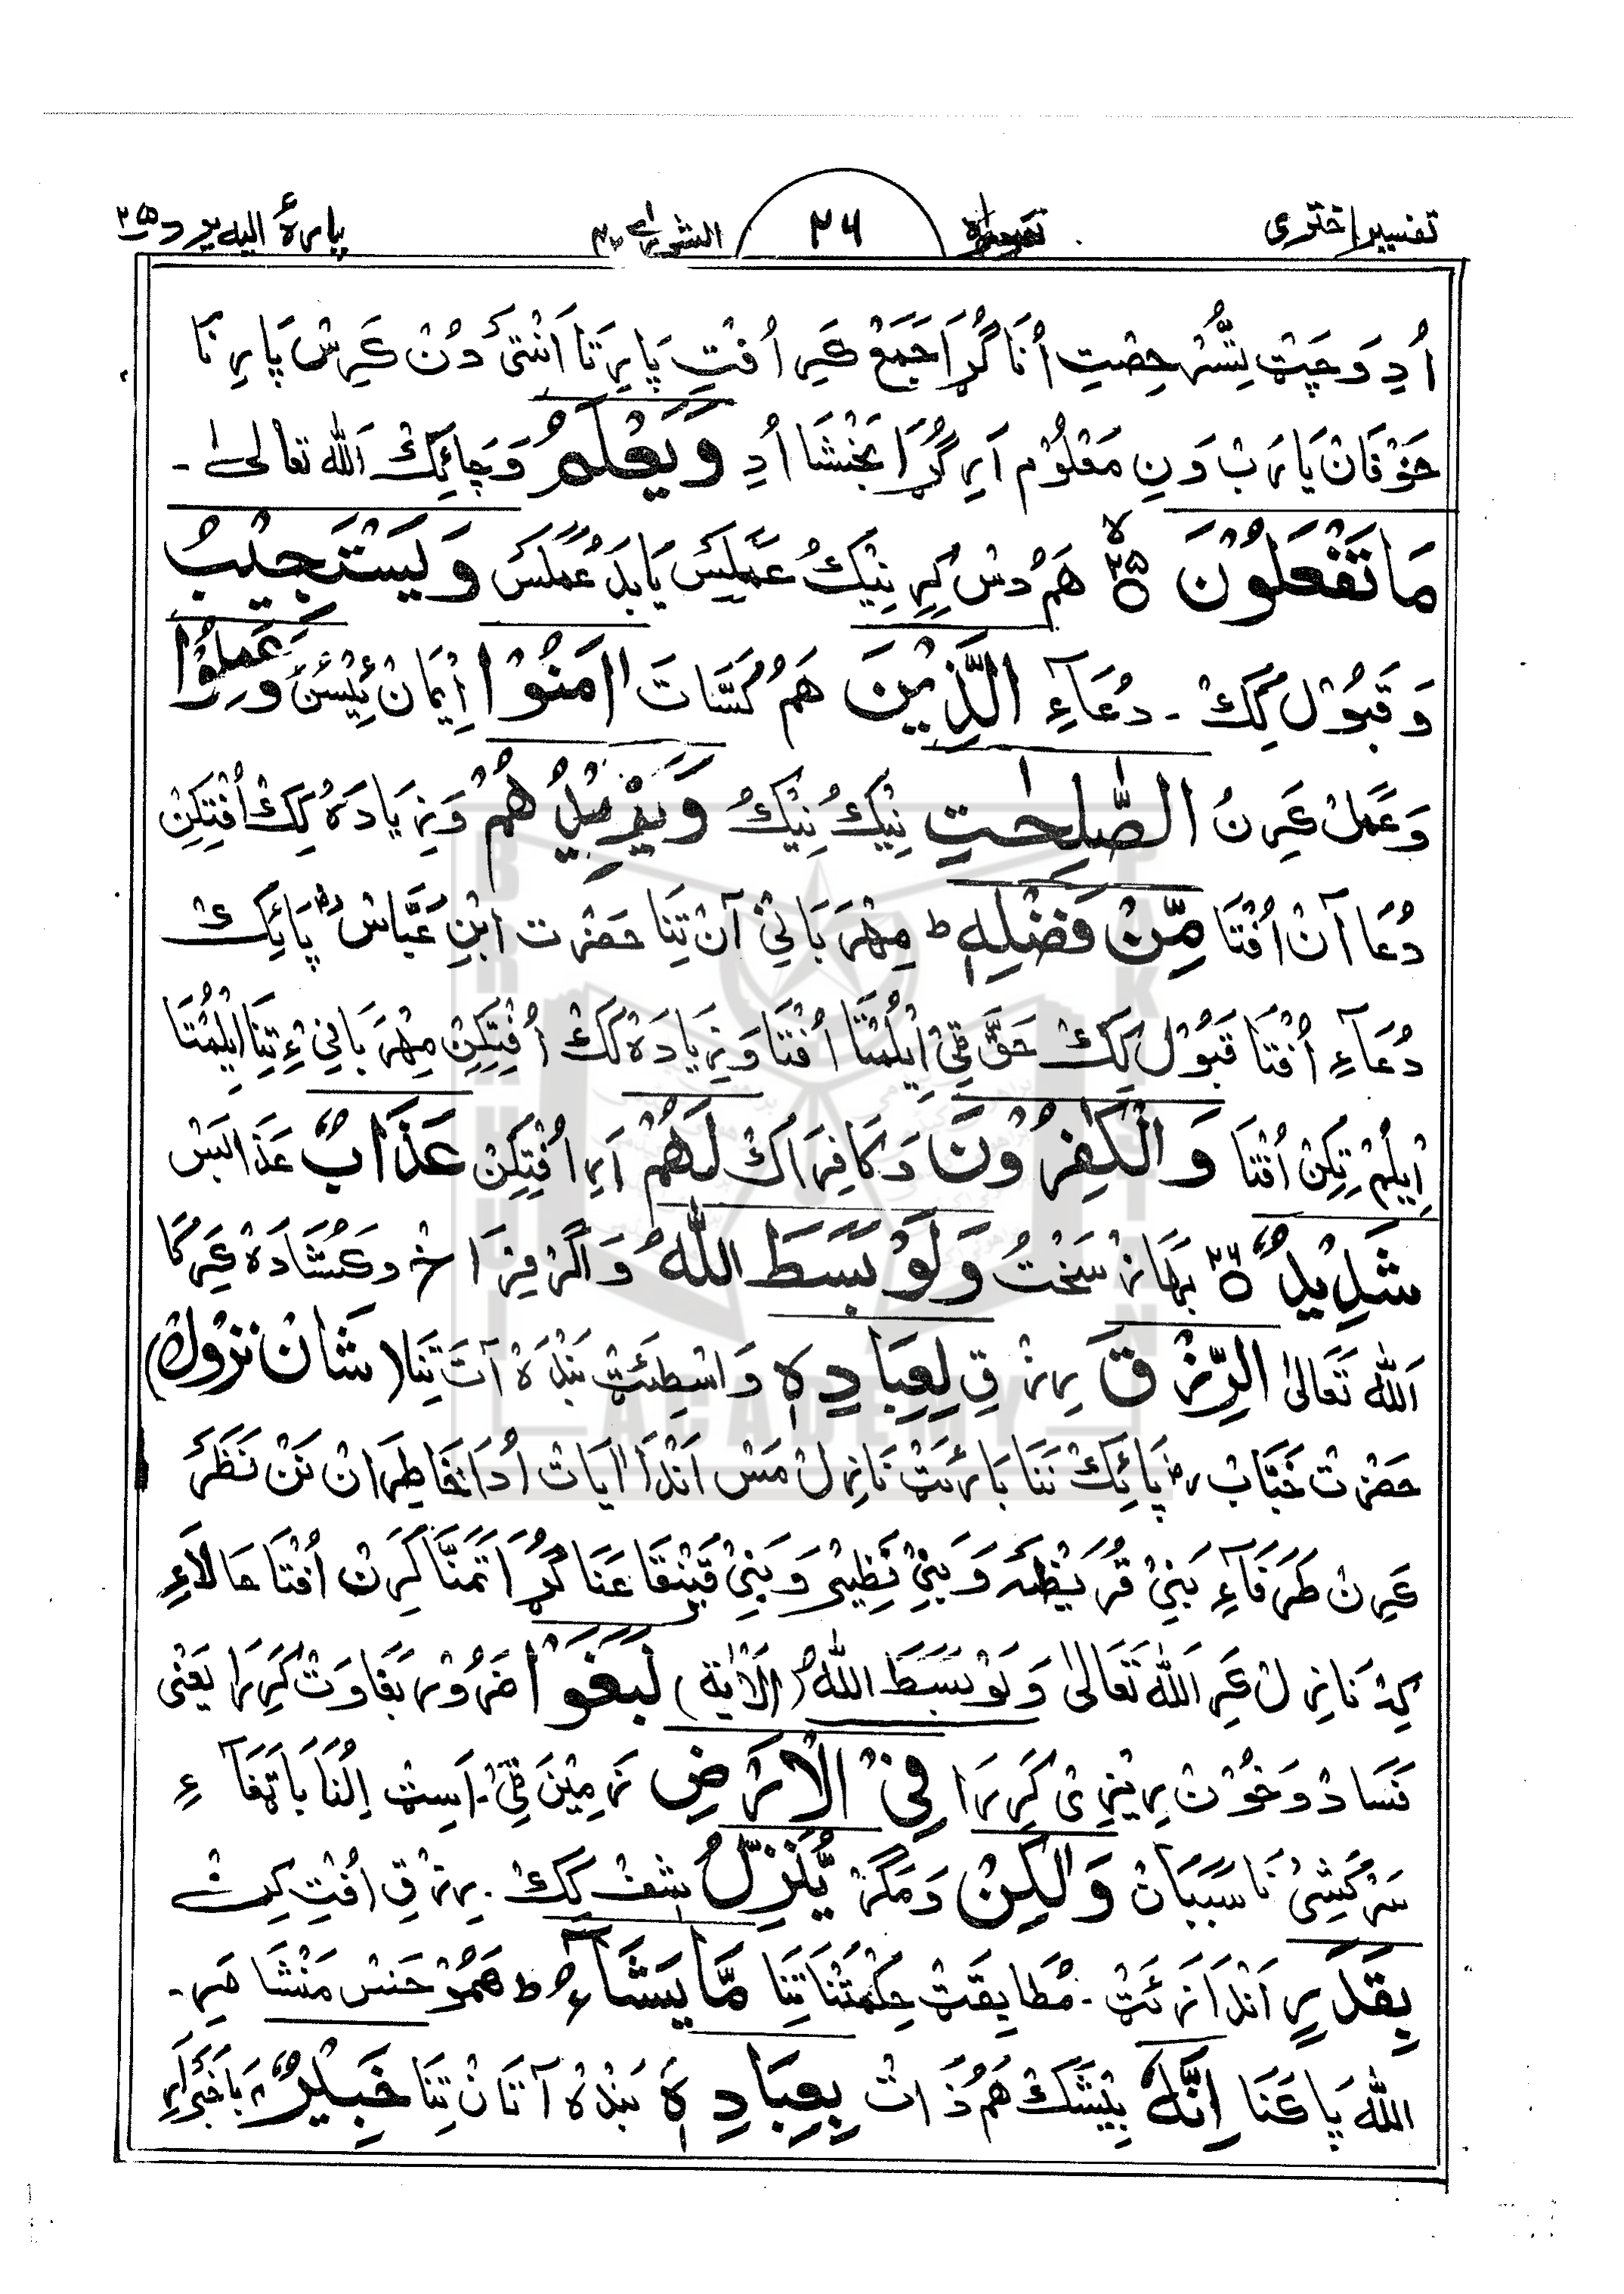 تفسیر اختری ۲۶ الشوریٰ ۴۲ پارهٔ الیه یرد ۲۵
اُدِ وَ چَپْ تِسُّر حِصّتِ اُنَا گُڑَا جَمَعْ کَرِ اُفْتِ پَارِ تَا اَنْتَئ دُنْ کَرِسْ پَارِ نَا
حَوْ فَانْ یَا رَبْ وَنِ مَعْلُوْم اَرِ گُڑَا بَخْشَا اُدِ وَیَعْلَمُ وَ چَائِکْ اَللّٰه تعالیٰ -
مَا تَفْعَلُوْنَ ۲۵ هَمْ دُسْ کِرِ نِیْکُ عَمَلَسْ یَا بَدُ عَمَلَسْ وَیَسْتَجِیْبُ
وَ قَبُوْل کِکْ - دُعَآءِ الَّذِیْنَ هَمْ کَسَّاتَ اٰمَنُوْا اِیْمَانْ ئِیْسُنْ وَعَمِلُوا
وَعَمَلْ کَرِنُ الصّٰلِحٰتِ نِیْکُ نِیْکُ وَیَزِیْدُهُمْ وَ زِیَادَهُ کِکْ اُفْتِکِنْ
دُعَا آنْ اُفْتَا مِّنْ فَضْلِهٖ ط مِهْرَبَانِیْ آنْ تِنَا حَضْرَت ابْنِ عَبَّاسْ رض پَائِکْ
دُعَآءِ اُفْتَا قَبُوْل کِکْ حَقَّ قِیْ اِیْلُمْتَا اُفْتَا وَ زِیَادَهْ کِکْ اُفْتِکِنْ مِهْرَبَانِیْ ءِ تِنَا اِیْلُمْتَا
اِیْلُمْ تِکِنْ اُفْتَا وَالْکٰفِرُوْنَ وَ کَافِرَاکْ لَهُمْ اَرِ اُفْتِکِنْ عَذَابٌ عَذَابَسْ
شَدِیْدٌ ۲۶ بَهَازْ سَخْتُ وَلَوْ بَسَطَ اللّٰهُ وَ اَگَرْ فِرَاخْ وَ کُشَادَهْ کَرِکَا
اَللّٰه تَعَالیٰ الرِّزْقَ رِزْقِ لِعِبَادِهٖ وَاسْطِئَتْ بَنْدَهْ آتَ تِنَا (شَانْ نزول)
حَضْرَتْ خَبَّابْ رض پَائِکْ نَنَا بَارَئَتْ نَازِلْ مَسْ اَنْدَا اٰیَاتْ اُدَا خَاطِرَانْ نَنْ نَظَرَ
کَرِنْ طَرَفَآءِ بَنِیْ قُرَیْظَه وَ بَنِیْ نَظِیْر وَ بَنِیْ قَیْنِقَاعَنَا گُڑَا تَمَنَّا کَرِنْ اُفْتَا حَالاَءِ
کِدَ نَازِلْ کَرِ اَللّٰه تَعَالیٰ وَلَوْ بَسَطَ اللّٰهُ (اَلْاٰیة) لَبَغَوْا ضَرُوْر بَغَاوَتْ کَرِرَا یَعْنٰی
فَسَادْ وَ خُوْن رِیْزِیْ کَرِرَا فِیْ الْاَرْضِ زَمِیْنَ قِیْ - اَسِتْ اِلُنَا بَاتِّفَاءِ
سَرْکَشِیْ نَا سَبَبَانْ وَلٰکِنْ وَ مَگَرْ یُّنَزِّلُ شِفْ کِکْ - رِزْقِ اُفْتِ کِتْ
بِقَدَرٍ اَنْدَازَئَتْ - مُطَابِقَتْ حِکْمَتْنَا تِنَا مَّا یَشَآءُ ط هَمُوْ حَسْ مَنْشَا مَرِ -
اللّٰه پَا کَنَا اِنَّهٗ بِیْشَکْ هَمْ ذَاتْ بِعِبَادِهٖ بَنْدَهْ آتَانْ تِنَا خَبِیْرٌ بَاخَبَرْ اَرِ